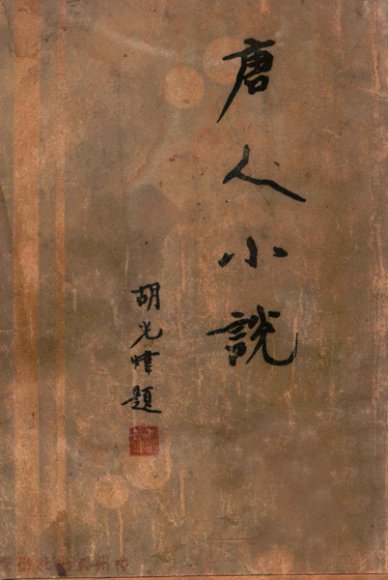 唐人小說
胡光煒題